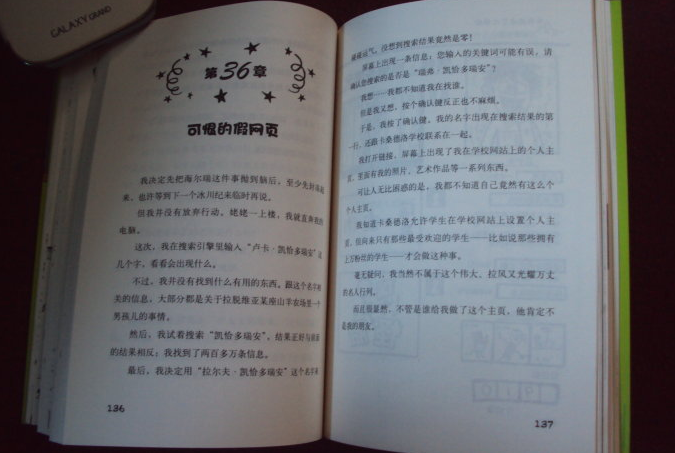 GALAXY GRAND
第36章
可恨的假网页
我决定先把海尔瑞这件事抛到脑后，至少先封
来，也许等到下一个冰川纪来临时再说。
但我并没有放弃行动。姥姥一上楼，我就直奔我的
电脑。
这次，我在搜索引擎里输入“卢卡·凯恰多瑞安”这
几个字，看看会出现什么。
不过，我并没有找到什么有用的东西。跟这个名字相
关的信息，大部分都是关于拉脱维亚某座山羊农场里一个
男孩儿的事情。
然后，我试着搜索“凯恰多瑞安”，结果正好与前面
的结果相反：我找到了两百多万条信息。
最后，我决定用“拉尔夫·凯恰多瑞安”这个名字来
136
碰碰运气。没想到搜索结果竟然是零！
屏幕上出现一条信息：您输入的关键词可能有误，请
确认您搜索的是否是“瑞弗·凯恰多瑞安”？
我想——我都不知道我在找谁。
但是我又想，按个确认键反正也不麻烦。
于是，我按了确认键。我的名字出现在搜索结果的第
一行，还跟卡桑德洛学校联系在一起。
我打开链接，屏幕上出现了我在学校网站上的个人主
页，里面有我的照片、艺术作品等一系列东西。
可让人无比困惑的是，我都不知道自己竟然有这么个
个人主页。
我知道卡桑德洛允许学生在学校网站上设置个人主
页，但向来只有那些最受欢迎的学生——比如说那些拥有
上万粉丝的学生——才会做这种事。
毫无疑问，我当然不属于这个伟大、拉风又光耀万丈
的名人行列。
而且很显然，不管是谁给我做了这个主页，他肯定不
是我的朋友。
137